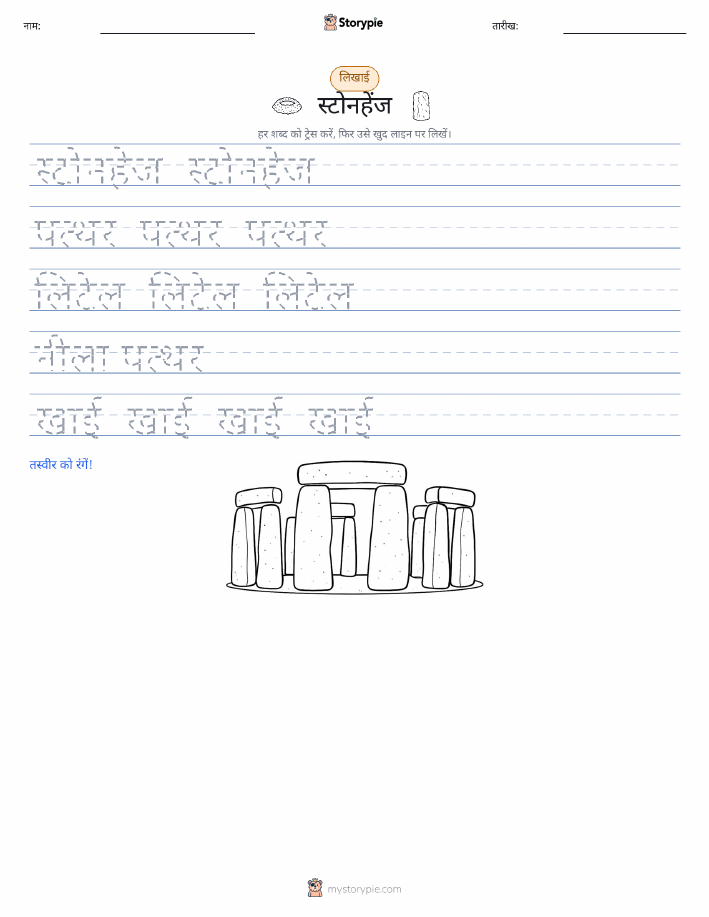 नाम:
Storypie
तारीख:
लिखाई
स्टोनहेंज
हर शब्द को ट्रेस करें, फिर उसे खुद लाइन पर लिखें।
स्टोनहेंज स्टोनहेंज
पत्थर पत्थर पत्थर
लिंटेल लिंटेल लिंटेल
नीला पत्थर
खाई खाई खाई खाई
तस्वीर को रंगें!
mystorypie.com